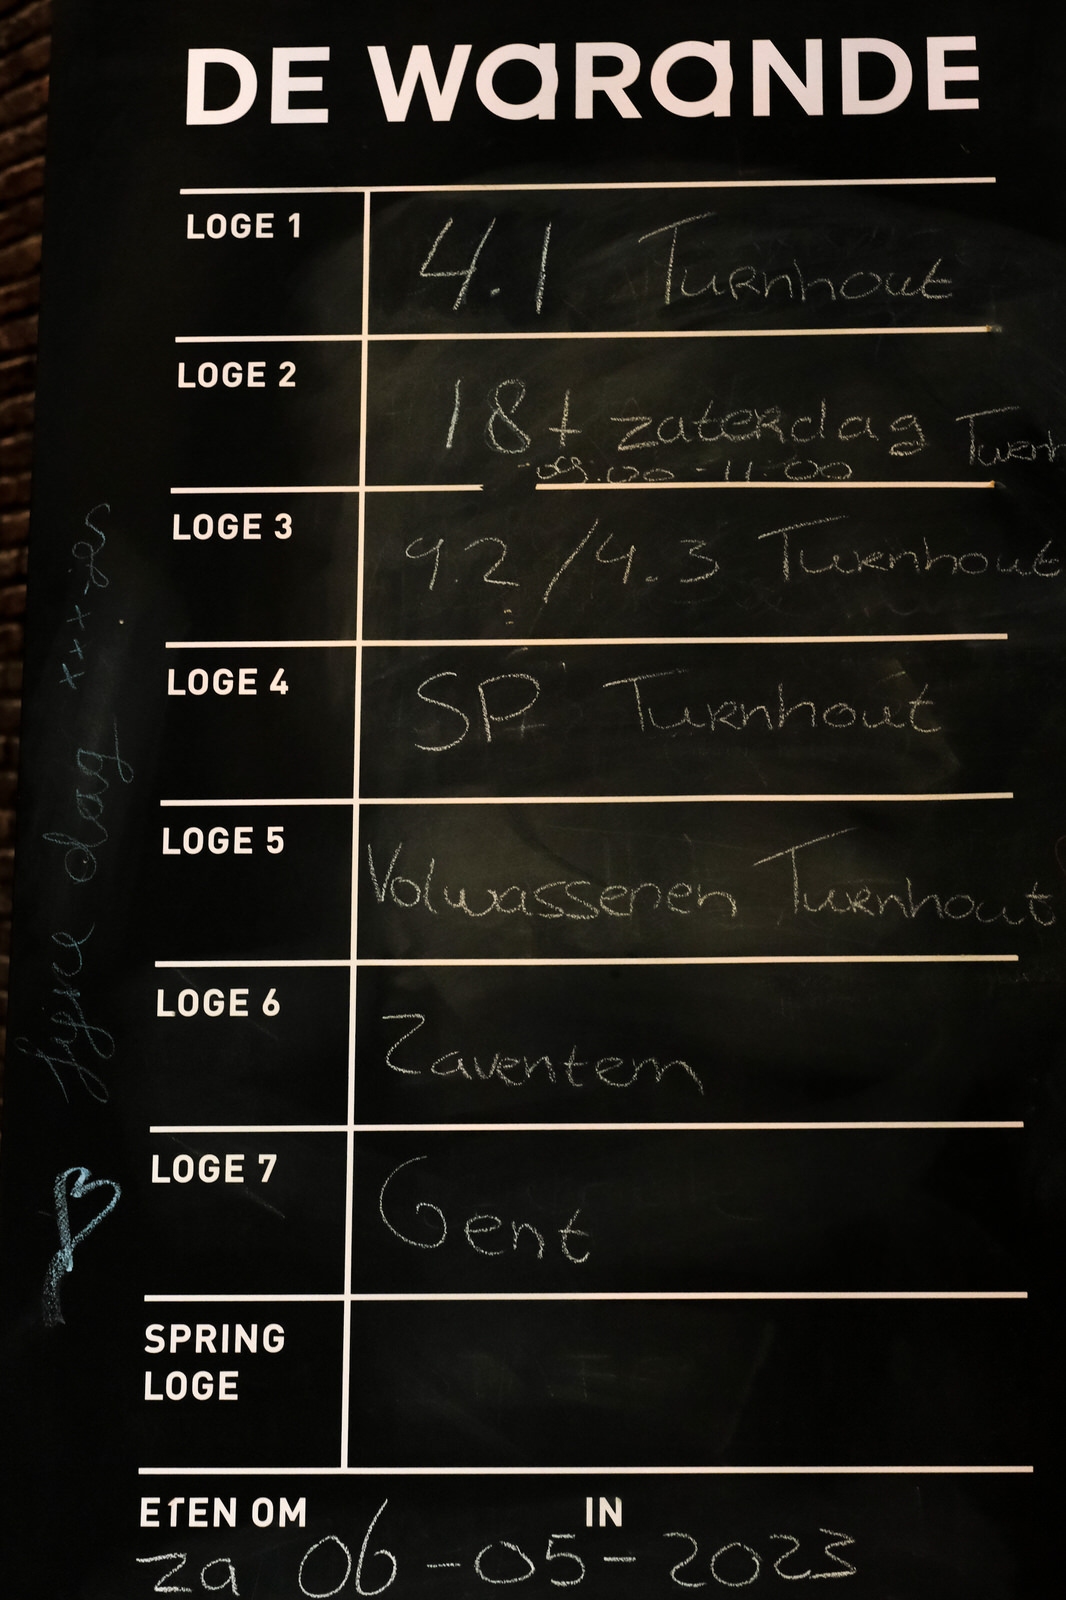 DE WARANDE
LOGE 1
4.1 Turnhout
LOGE 2
18+ zaterdag Turnh
09:00 - 11:00
LOGE 3
4.2 / 4.3 Turnhout
LOGE 4
SP Turnhout
LOGE 5
Volwassenen Turnhout
LOGE 6
Zaventem
LOGE 7
Gent
SPRING
LOGE
ETEN OM IN
za 06-05-2023
fijne dag xxx-jes